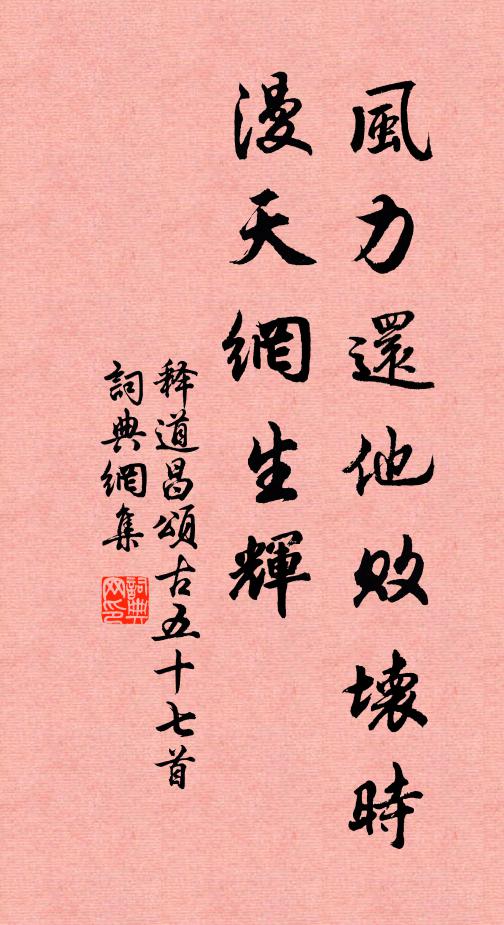 風力還他敗壞時
漫天網生輝
释道昌頌古五十七首
詞典網集
詞典網印